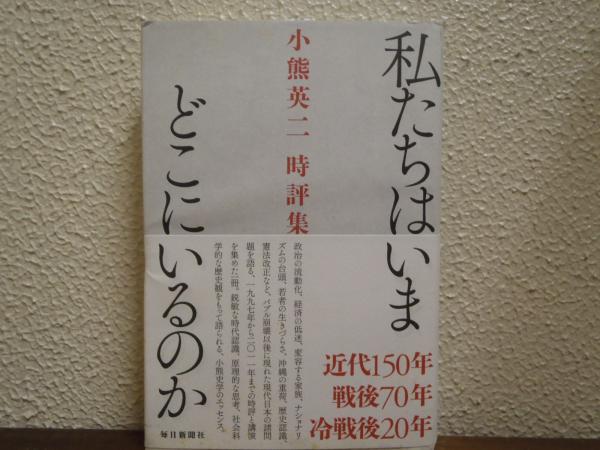 私たちはいま
どこにいるのか
小熊英二 時評集
政治の流動化、経済の低迷、変容する家族、ナショナリ
ズムの台頭、若者の生きづらさ、沖縄の重荷、歴史認識、
憲法改正など、バブル崩壊以後に現れた現代日本の諸問
題を語る、一九九七年から二〇一一年までの時評と講演
を集めた一冊。鋭敏な時代認識、原理的な思考、社会科
学的な歴史観をもって語られる、小熊史学のエッセンス。
近代150年
戦後70年
冷戦後20年
毎日新聞社